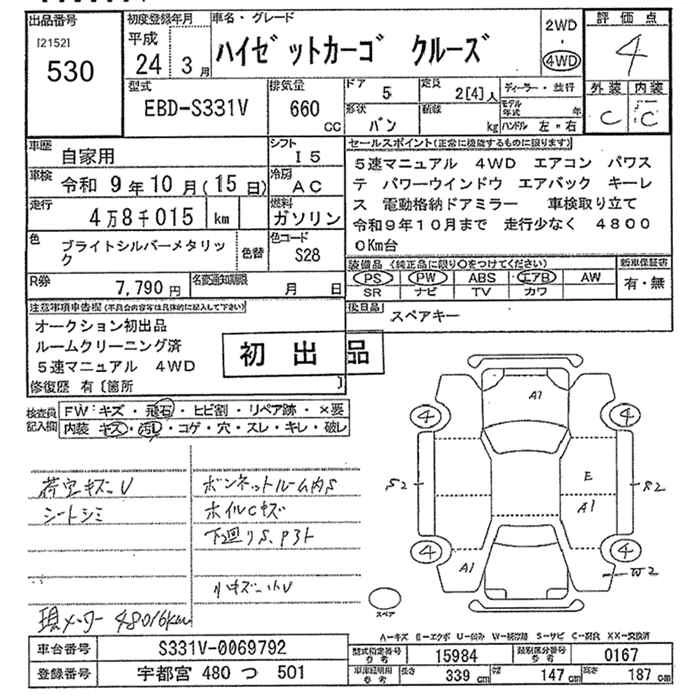 出品番号
[2152]
530
初度登録年月
平成
24年 3月
車名・グレード
ハイゼットカーゴ クルーズ
2WD
・
4WD
評価点
4
外装 内装
C C
型式
EBD-S331V
排気量
660
CC
ドア
5
定員
2[4]人
ディーラー・並行
形状
バン
積載
kg
モデル年式
年
ハンドル 左・右
車歴
自家用
シフト
I5
車検
令和 9年 10月(15日)
冷房
AC
走行
4万8千015 km
燃料
ガソリン
色
ブライトシルバーメタリック
色替
色コード
S28
R券
7,790円
名変通知期限
月 日
セールスポイント(正常に機能するものに限ります)
5速マニュアル 4WD エアコン パワス
テ パワーウインドウ エアバック キーレ
ス 電動格納ドアミラー 車検取り立て
令和9年10月まで 走行少なく 4800
0Km台
装備品 (純正品に限り○をつけてください)
PS PW ABS エアB AW
SR ナビ TV カワ
新車保証書
有・無
後日品
スペアキー
注意事項申告欄(不具合の内容等は具体的に記入して下さい)
オークション初出品
ルームクリーニング済
5速マニュアル 4WD
修復歴 有〔箇所 〕
初出品
検査員
記入欄
FW:キズ・飛石・ヒビ割・リペア跡・×要
内装 キズ・汚れ・コゲ・穴・スレ・キレ・破レ
荷室キズU
シートシミ
ボンネットルーム内S
ホイルCキズ
下廻りS、P3ト
小キズ小U
現メーター48016km
A1
4
4
S2
E
A1
S2
4
4
A1
W2
スペア
A-キズ E-エクボ U-凹み W-補修跡 S-サビ C-腐食 XX-交換済
車台番号
S331V-0069792
登録番号
宇都宮 480 つ 501
型式指定番号
参考
15984
類別区分番号
参考
0167
車庫証明用
参考
長さ 339cm 幅 147cm 高さ 187cm